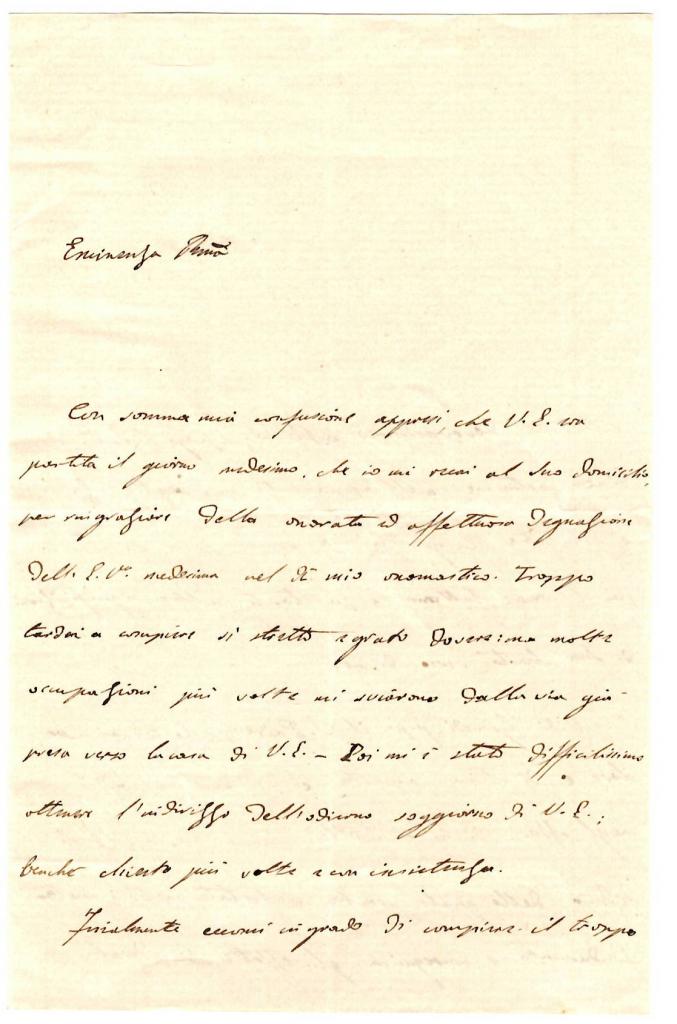 Eminenza Rma
Con somma mia confusione appresi, che V. E. era
partita il giorno medesimo, che io mi recai al Suo domicilio,
per ringraziare della onorata ed affettuosa degnazione
dell' E. Va. medesima nel dì mio onomastico. Troppo
tardai a compiere sì stretto e grato dovere: ma molte
occupazioni più volte mi sviarono dalla via già
presa verso la casa di V. E. – Poi mi è stato difficilissimo
ottenere l'indirizzo dell'odierno soggiorno di V. E.;
benchè chiesto più volte e con insistenza.
Finalmente eccomi in grado di compiere il troppo